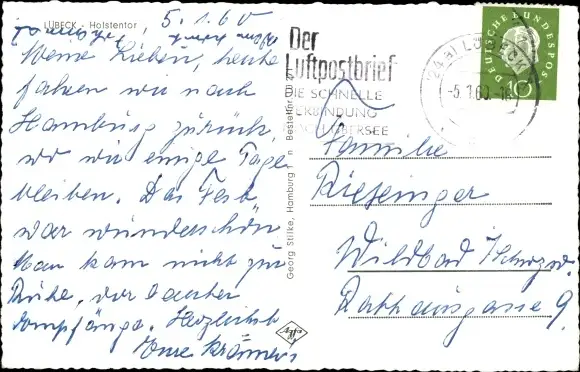 LÜBECK - Holstentor
5.1.60
Meine Lieben, heute
fahren wir nach
Hamburg zurück,
wo wir einige Tage
bleiben. Das Fest
war wunderschön
Man kam nicht zur
Ruhe, vor lauter
Empfänge. Herzlichst
Eure Krämers
Georg Stilke, Hamburg
Bestell
Agfa
Der
Luftpostbrief
DIE SCHNELLE
VERBINDUNG
NACH ÜBERSEE
(24a) LÜBECK
-5.1.60.-18
DEUTSCHE BUNDESPOST
10
Familie
Riexinger
Wildbad Schwzw.
Rathausgasse 9.